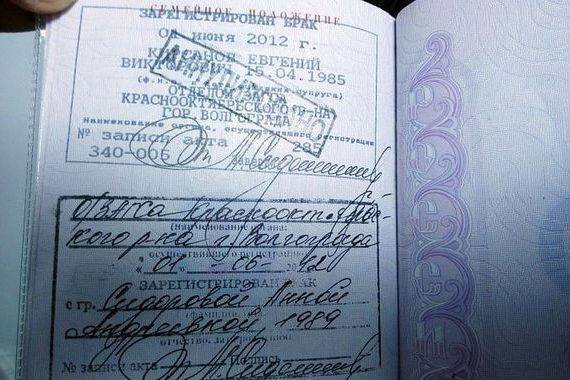 СЕМЕЙНОЕ ПОЛОЖЕНИЕ
ЗАРЕГИСТРИРОВАН БРАК
июня 2012 г.
ЕВГЕНИЙ
15.04.1985
(ф.и. супруга)
ОТДЕЛОМ
КРАСНООКТЯБРЬСКОГО Р-НА
ГОР. ВОЛГОГРАДА
Наименование органа, осуществившего регистрации
№ записи акта 285
340-006
Красноокт
кого р-на г. Волгограда
(наименование органа:
осуществившего регистрацию)
"01" - 06 - 2012
ЗАРЕГИСТРИРОВАН БРАК
с гр. Сидоровой Анной
Андреевной, 1989
№ записи акта Подпись